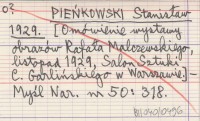 o?
PIEŃKOWSKI Stanisław
1929. [Omówienie wystawy
obrazów Rafała Malczewskiego,
listopad 1929, Salon Sztuki
C. Garlińskiego w Warszawie] -
Myśl Nar. nr 50: 318.